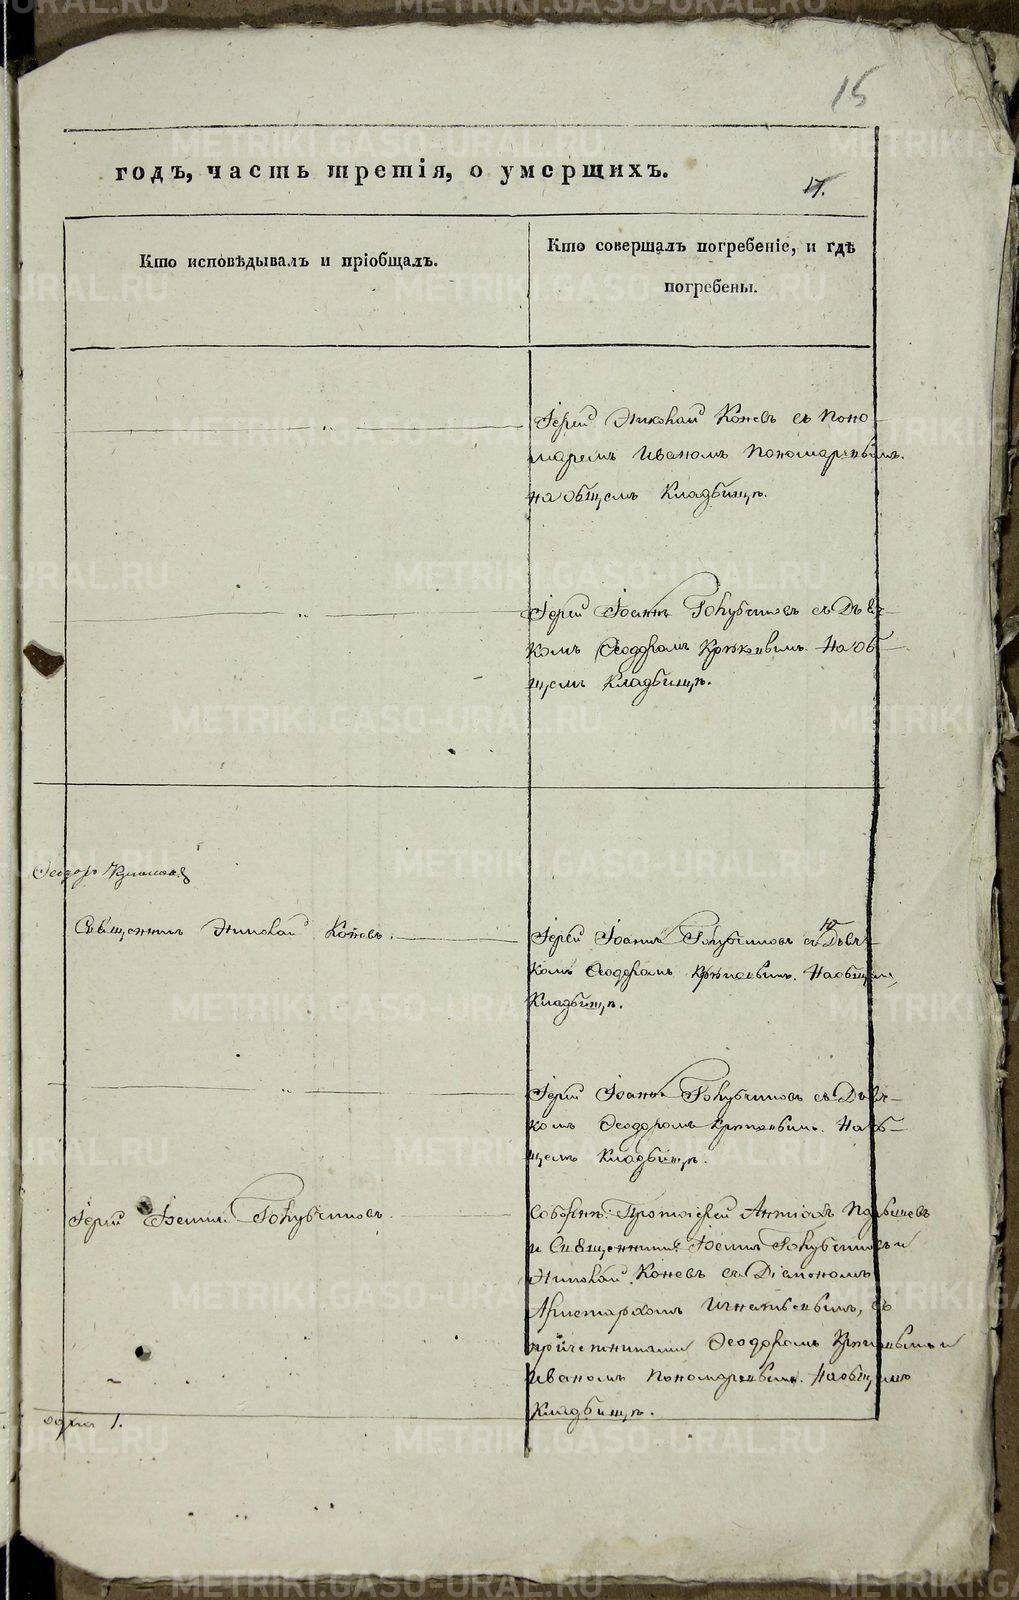 15
годъ, часть третія, о умерщихъ.
17.
Кто исповѣдывалъ и пріобщалъ.
Кто совершалъ погребеніе, и гдѣ
погребены.
Іерей Николай Коневъ съ Поно-
маремъ Иваномъ Пономаревымъ.
на общемъ Кладбищѣ.
Іерей Іоаннъ Голубчиковъ съ Дьяч-
комъ Ѳеодоромъ На об-
щемъ Кладбищѣ.
Ѳеодоръ
Священникъ Николай Коневъ.
Іерей Іоаннъ Голубчиковъ съ Дьяч-
комъ Ѳеодоромъ На общемъ
Кладбищѣ.
Іерей Іоаннъ Голубчиковъ съ Дьяч-
комъ Ѳеодоромъ На об-
щемъ Кладбищѣ.
Іерей Іоаннъ Голубчиковъ
Соборнѣ: Протоіерей
и Священники: Іоаннъ Голубчиковъ и
Николай Коневъ съ Діакономъ
Аристархомъ Игнатьевымъ, съ
причетниками Ѳеодоромъ и
Иваномъ Пономаревымъ. На общемъ
Кладбищѣ.
одна 1.
METRIKI.GASO-URAL.RU